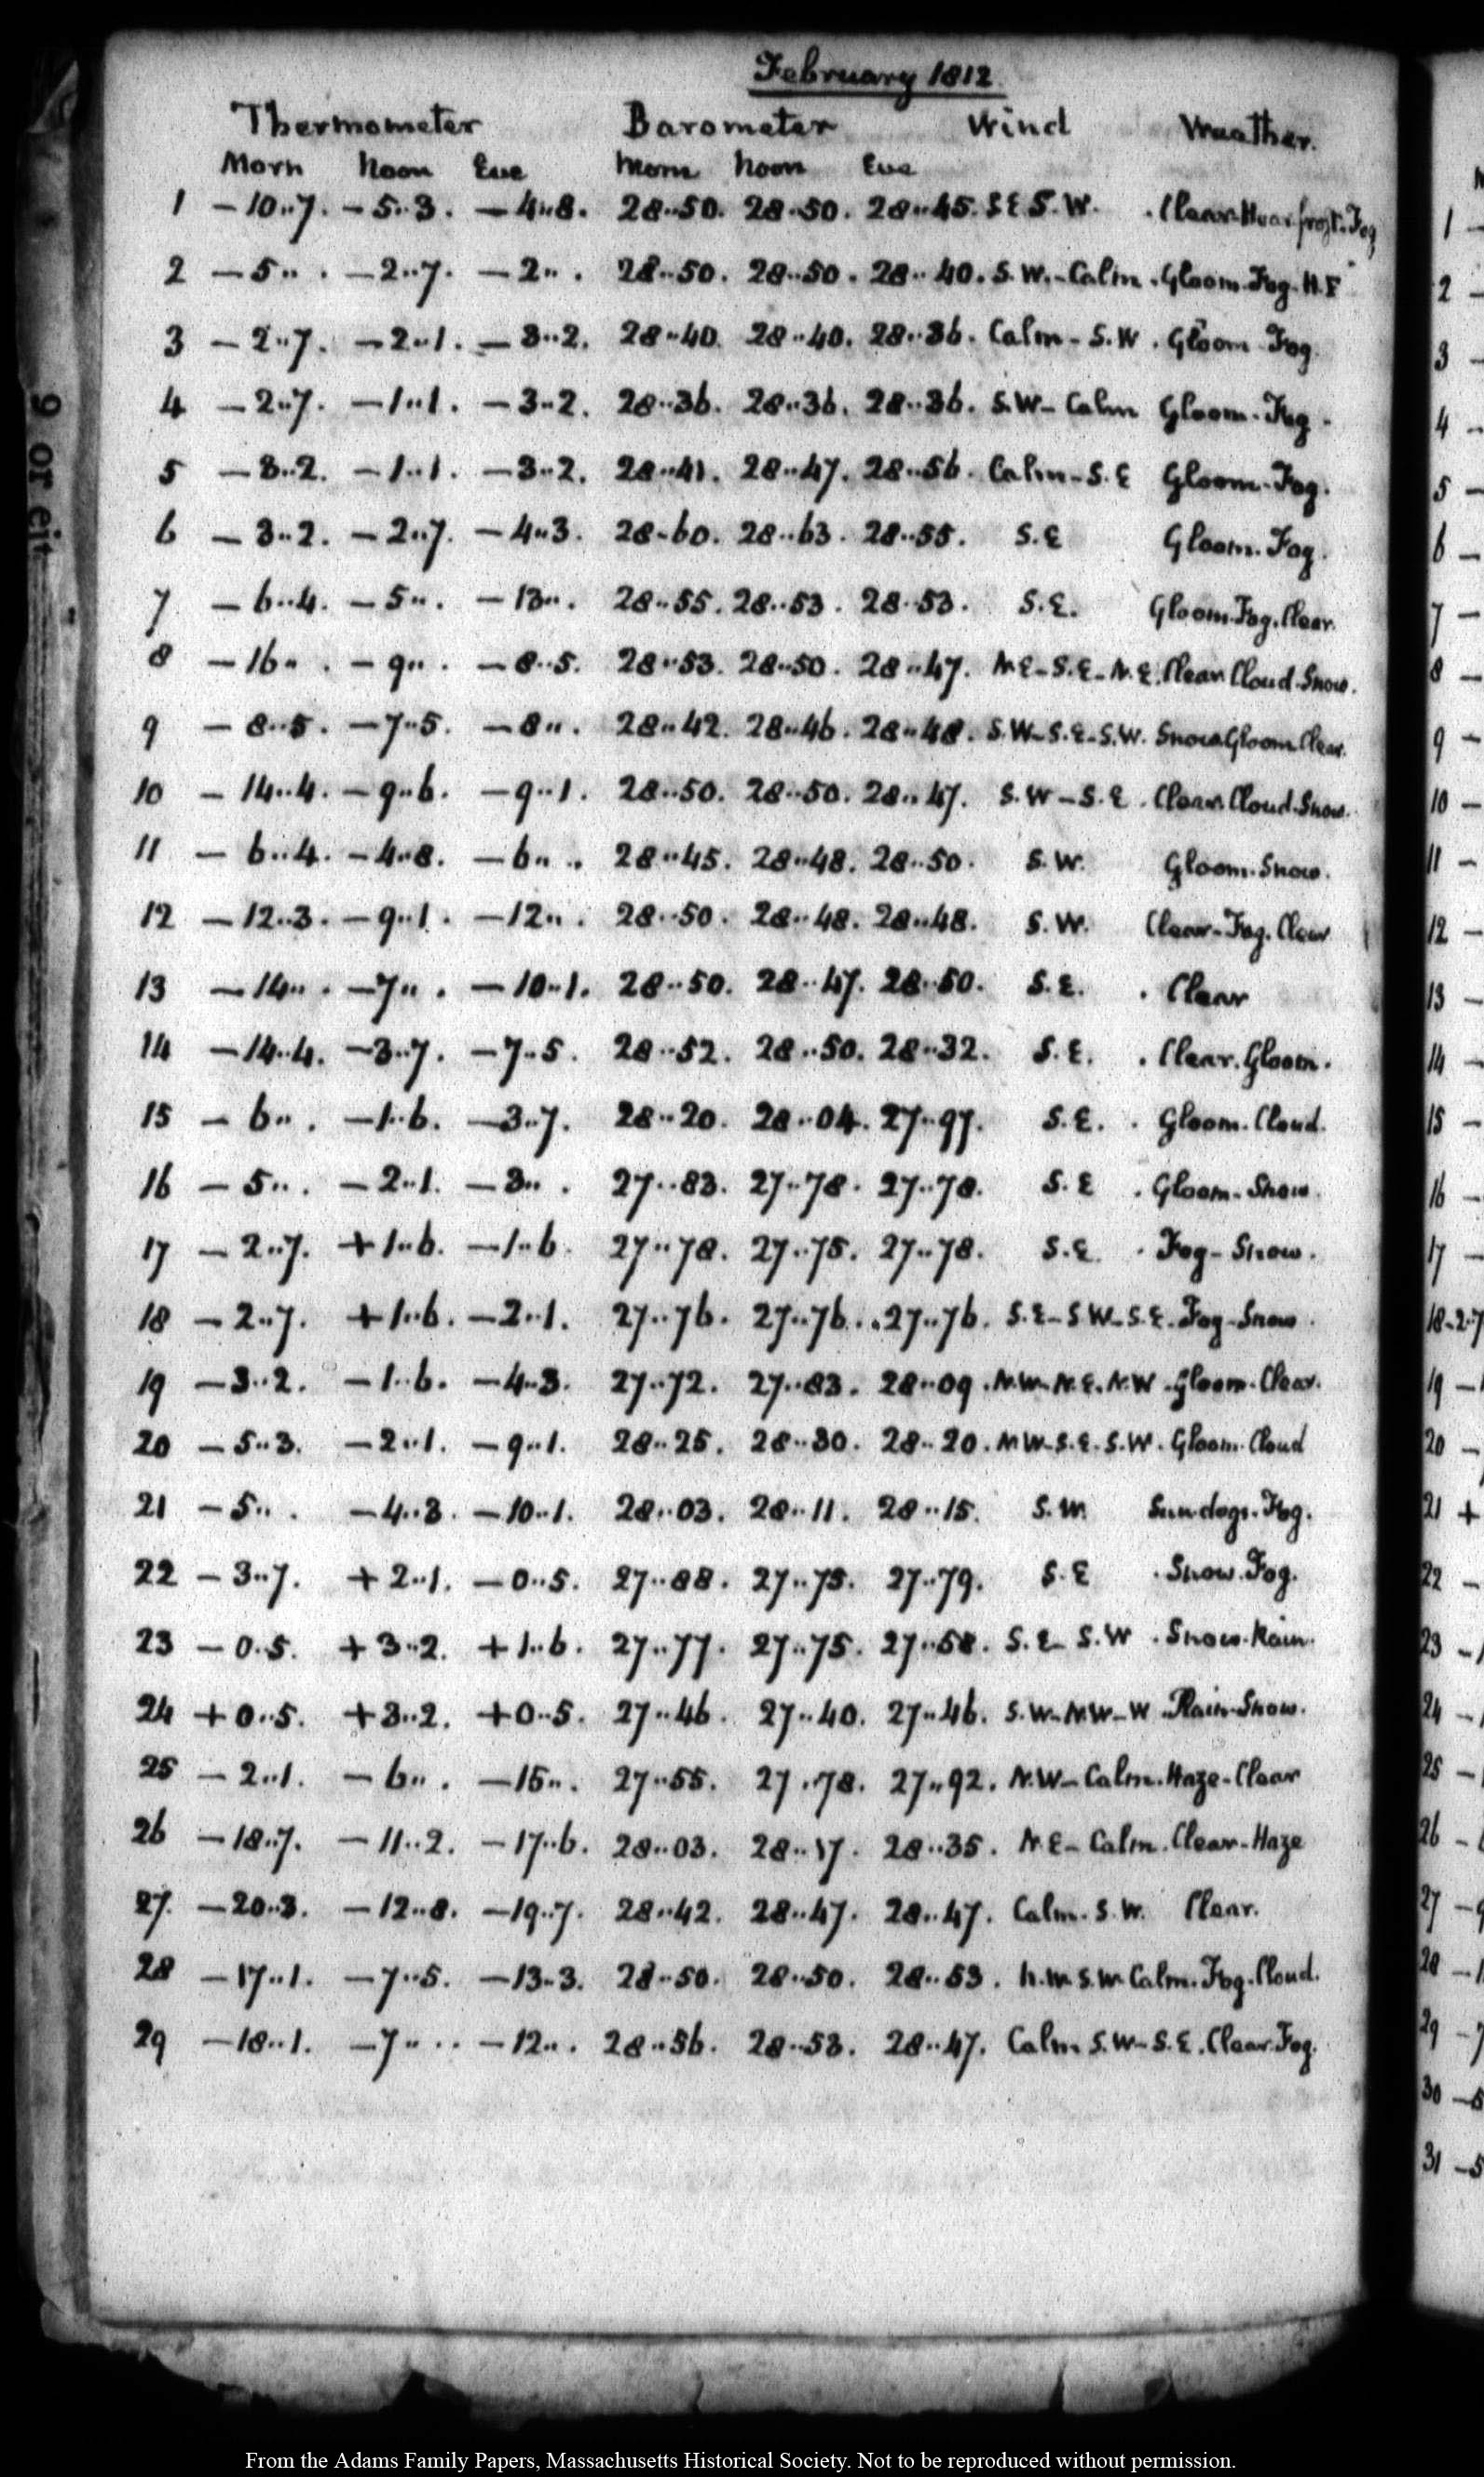 February 1812.
Thermometer Barometer Wind Weather.
Morn Noon Eve Morn Noon Eve
1 -10..7. -5..3. -4..8. 28..50. 28..50. 28..45. S.E S.W. . Clear. Hoar frost. Fog
2 -5.. . -2..7. -2.. . 28..50. 28..50. 28..40. S.W.-Calm. Gloom. Fog. H.F
3 -2..7. -2..1. -3..2. 28..40. 28..40. 28..36. Calm-S.W. Gloom-Fog.
4 -2..7. -1..1. -3..2. 28..36. 28..36. 28..36. S.W-Calm Gloom-Fog.
5 -3..2. -1..1. -3..2. 28..41. 28..47. 28..56. Calm-S.E Gloom-Fog.
6 -3..2. -2..7. -4..3. 28..60. 28..63. 28..55. S.E Gloom. Fog.
7 -6..4. -5.. . -13.. . 28..55. 28..53. 28..53. S.E. Gloom. Fog. Clear.
8 -16.. . -9.. . -8..5. 28..53. 28..50. 28..47. N.E-S.E-N.E. Clear Cloud. Snow.
9 -8..5. -7..5. -8.. . 28..42. 28..46. 28..48. S.W-S.E-S.W. Snow Gloom. Clear.
10 -14..4. -9..6. -9..1. 28..50. 28..50. 28..47. S.W-S.E. Clear. Cloud. Snow.
11 -6..4. -4..8. -6.. . 28..45. 28..48. 28..50. S.W. Gloom. Snow.
12 -12..3. -9..1. -12.. . 28..50. 28..48. 28..48. S.W. Clear-Fog. Clear
13 -14.. . -7.. . -10..1. 28..50. 28..47. 28..50. S.E. . Clear
14 -14..4. -3..7. -7..5. 28..52. 28..50. 28..32. S.E. . Clear. Gloom.
15 -6.. . -1..6. -3..7. 28..20. 28..04. 27..97. S.E. . Gloom. Cloud.
16 -5.. . -2..1. -3.. . 27..83. 27..78. 27..78. S.E . Gloom-Snow.
17 -2..7. +1..6. -1..6. 27..78. 27..75. 27..78. S.E. . Fog-Snow.
18 -2..7. +1..6. -2..1. 27..76. 27..76. 27..76. S.E-S.W-S.E. Fog-Snow.
19 -3..2. -1..6. -4..3. 27..72. 27..83. 28..09. N.W-N.E.N.W. Gloom-Clear.
20 -5..3. -2..1. -9..1. 28..25. 28..30. 28..20. N.W-S.E-S.W. Gloom. Cloud
21 -5.. . -4..3. -10..1. 28..03. 28..11. 28..15. S.W Sundogs. Fog.
22 -3..7. +2..1. -0..5. 27..88. 27..75. 27..79. S.E . Snow. Fog.
23 -0..5. +3..2. +1..6. 27..77. 27..75. 27..58. S.E-S.W. Snow-Rain.
24 +0..5. +3..2. +0..5. 27..46. 27..40. 27..46. S.W-N.W-W. Rain-Snow.
25 -2..1. -6.. . -15.. . 27..55. 27..78. 27..92. N.W-Calm. Haze-Clear
26 -18..7. -11..2. -17..6. 28..03. 28..17. 28..35. N.E-Calm. Clear-Haze
27. -20..3. -12..8. -19..7. 28..42. 28..47. 28..47. Calm. S.W. Clear.
28 -17..1. -7..5. -13..3. 28..50. 28..50. 28..53. N.W S.W Calm. Fog. Cloud.
29 -18..1. -7.. .. -12.. . 28..56. 28..53. 28..47. Calm S.W-S.E. Clear. Fog.
1 -
2 -
3 -
4 -
5 -
6 -
7 -
8 -
9 -
10 -
11 -
12 -
13 -
14 -
15 -
16 -
17 -
18-2..7
19 -
20 -
21 +
22 -
23 -
24 -
25 -
26 -
27 -
28 -
29 -
30 -
31 -5
9 or eit
From the Adams Family Papers, Massachusetts Historical Society. Not to be reproduced without permission.